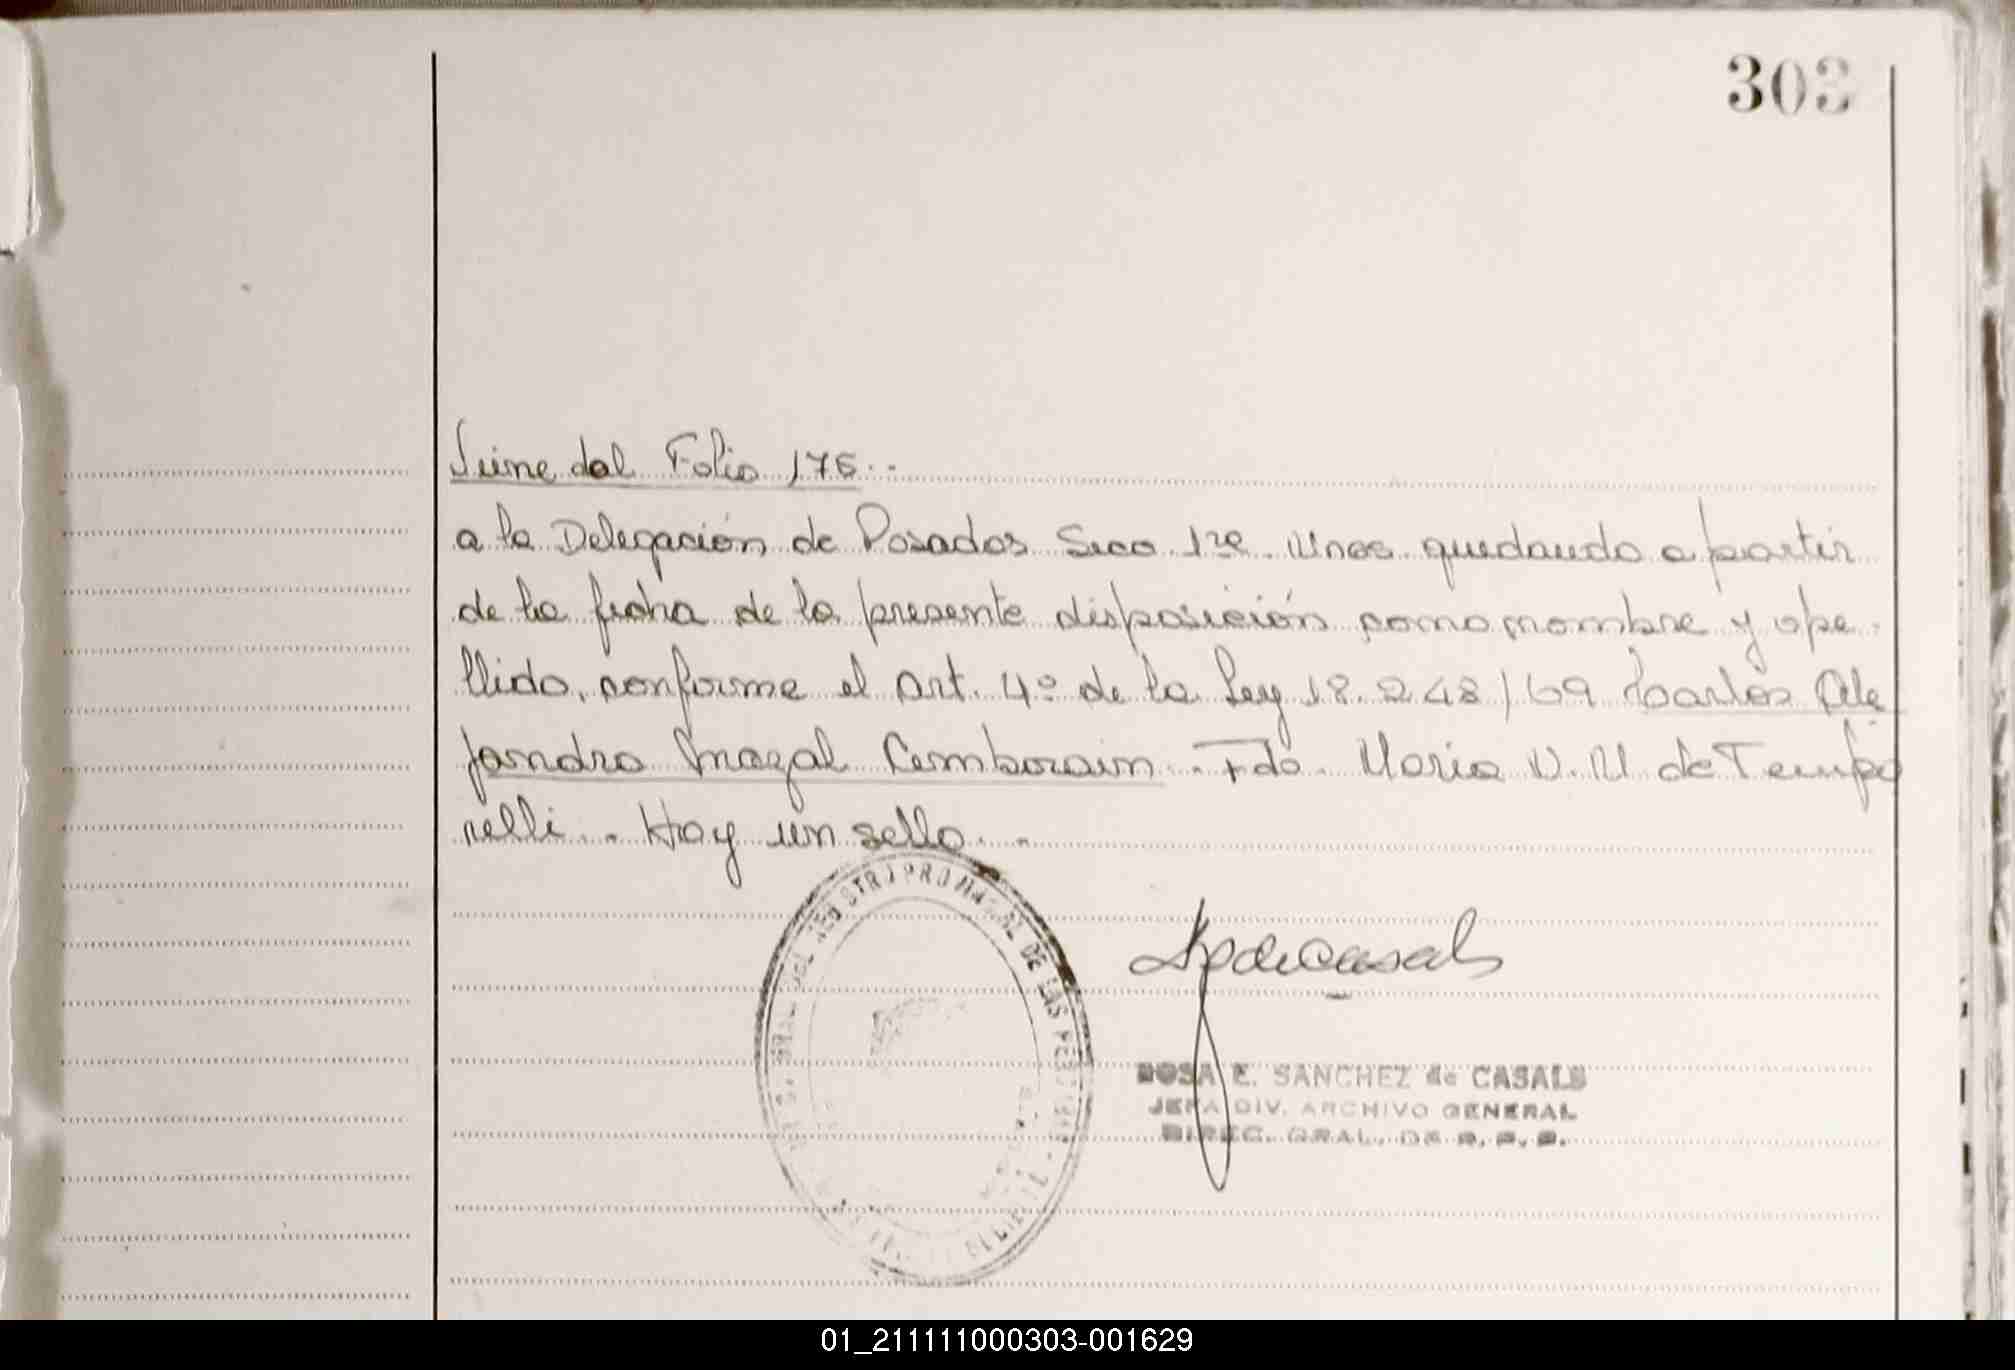 303
Viene del Folio 176.-
a la Delegación de Posadas Secc 1ra. Mnes. quedando a partir
de la fecha de la presente disposición como nombre y ape-
llido, conforme el Art. 4º de la Ley 18.248/69 Carlos Ale
jandro Mazal Cemborain. Fdo. Maria N. M. de Tempo
relli.. Hay un sello..-
GRAL. DEL REGISTRO PROVINCIAL DE LAS PERSONAS
SpdeCasals
ROSA E. SANCHEZ de CASALS
JEFA DIV. ARCHIVO GENERAL
DIREC. GRAL. DE R. P. P.
01_211111000303-001629